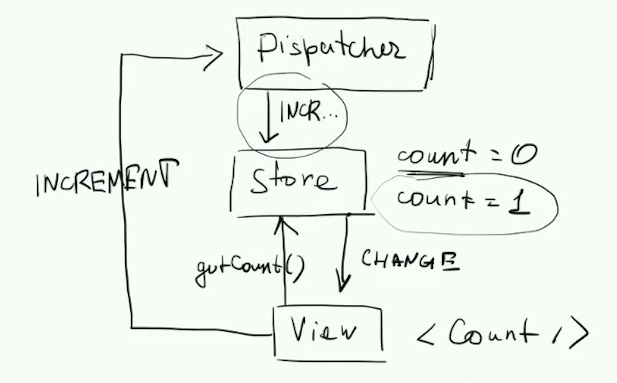 Dispatcher
INCR...
INCREMENT
Store
count = 0
count = 1
getCount()
CHANGE
View
< Count />